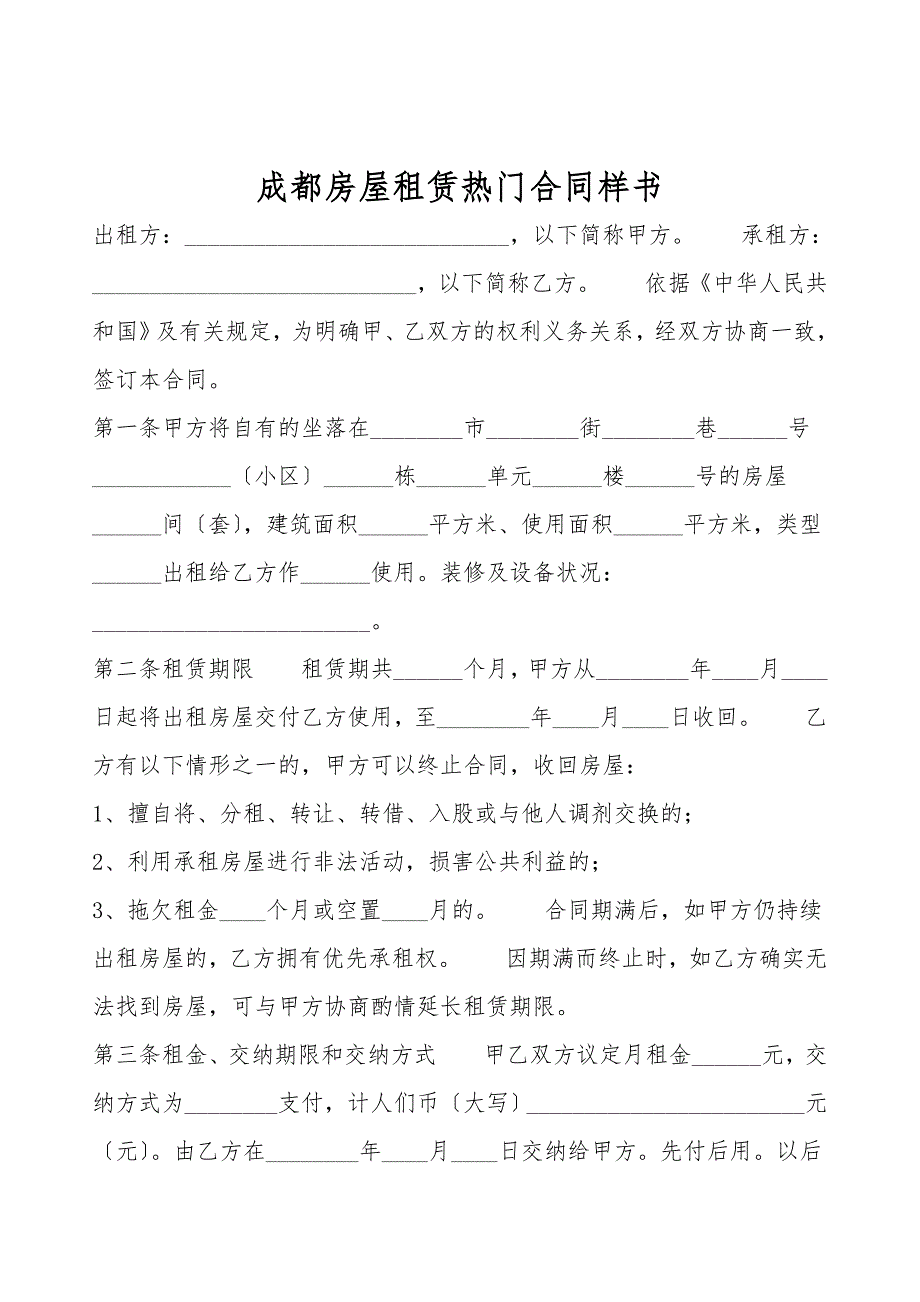 成都房屋租赁热门合同样书
出租方：____________________________，以下简称甲方。　　承租方：
____________________________，以下简称乙方。　　依据《中华人民共
和国》及有关规定，为明确甲、乙双方的权利义务关系，经双方协商一致，
签订本合同。
第一条甲方将自有的坐落在________市________街________巷______号
____________〔小区〕______栋______单元______楼______号的房屋
______间〔套〕，建筑面积______平方米、使用面积______平方米，类型
______出租给乙方作______使用。装修及设备状况：
________________________。
第二条租赁期限　　租赁期共______个月，甲方从________年____月____
日起将出租房屋交付乙方使用，至________年____月____日收回。　　乙
方有以下情形之一的，甲方可以终止合同，收回房屋：
1、擅自将、分租、转让、转借、入股或与他人调剂交换的；
2、利用承租房屋进行非法活动，损害公共利益的；
3、拖欠租金____个月或空置____月的。　　合同期满后，如甲方仍持续
出租房屋的，乙方拥有优先承租权。　　因期满而终止时，如乙方确实无
法找到房屋，可与甲方协商酌情延长租赁期限。
第三条租金、交纳期限和交纳方式　　甲乙双方议定月租金______元，交
纳方式为________支付，计人们币〔大写〕________________________元
〔元〕。由乙方在________年____月____日交纳给甲方。先付后用。以后